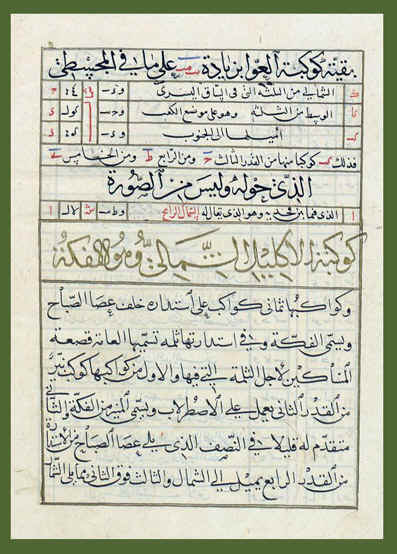 بقية كوكبة العوا بزيادة على ما في المجسطي
الشمالي من الثلثة التي في الساق اليسرى
الوسط من الثلثة وهو على موضع الكعب
اميلها الى الجنوب
فذلك كوكبا منها من القدر الثالث ومن الرابع ط ومن الخامس
الذي حوله وليس من الصورة
الذي فيما بين فخذيه وهو الذي يقال له السماك الرامح
كوكبة الاكليل الشمالي وهو الفكة
وكواكبها ثمانى كواكب على استدارة خلف عصا الصياح
ويسمى الفكة وفى استدارتها ثلمة تسميها العامة قصعة
المساكين لاجل الثلمة التي فيها والاول من كواكبها كوكب نير
من القدر الثانى يعمل على الاصطرلاب ويسمى المنير من الفكة والثانى
متقدم له قليلا في النصف الذى يلى عصا الصياح من الاستدارة
من القدر الرابع يميل الى الشمال والثالث فوق الثانى مما يلى الشمال